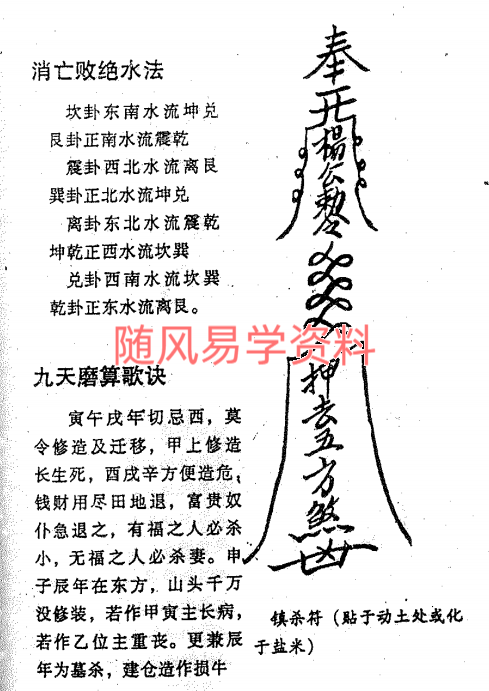 消亡败绝水法
坎卦东南水流坤兑
艮卦正南水流震乾
震卦西北水流离艮
巽卦正北水流坤兑
离卦东北水流震乾
坤乾正西水流坎巽
兑卦西南水流坎巽
乾卦正东水流离艮。
九天磨算歌诀
寅午戌年切忌西，莫
令修造及迁移，甲上修造
长生死，酉戌辛方便造危，
钱财用尽田地退，富贵奴
仆急退之，有福之人必杀
小，无福之人必杀妻。申
子辰年在东方，山头千万
没修装，若作甲寅主长病，
若作乙位主重丧。更兼辰
年为墓杀，建仓造作损牛
奉
杨公勅令
押去五方煞
镇杀符（贴于动土处或化
于盐米）
随风易学资料